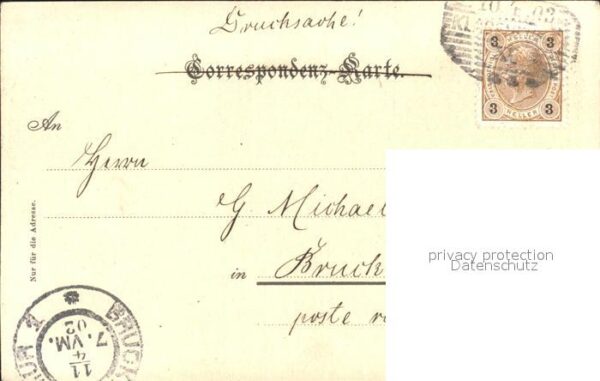 Drucksache!
Correspondenz-Karte.
3 3
HELLER
3 3
An
Herrn
G Michael
in Bruck
poste
Nur für die Adresse.
privacy protection
Datenschutz
BRUCK
11/4
02
7. VM.